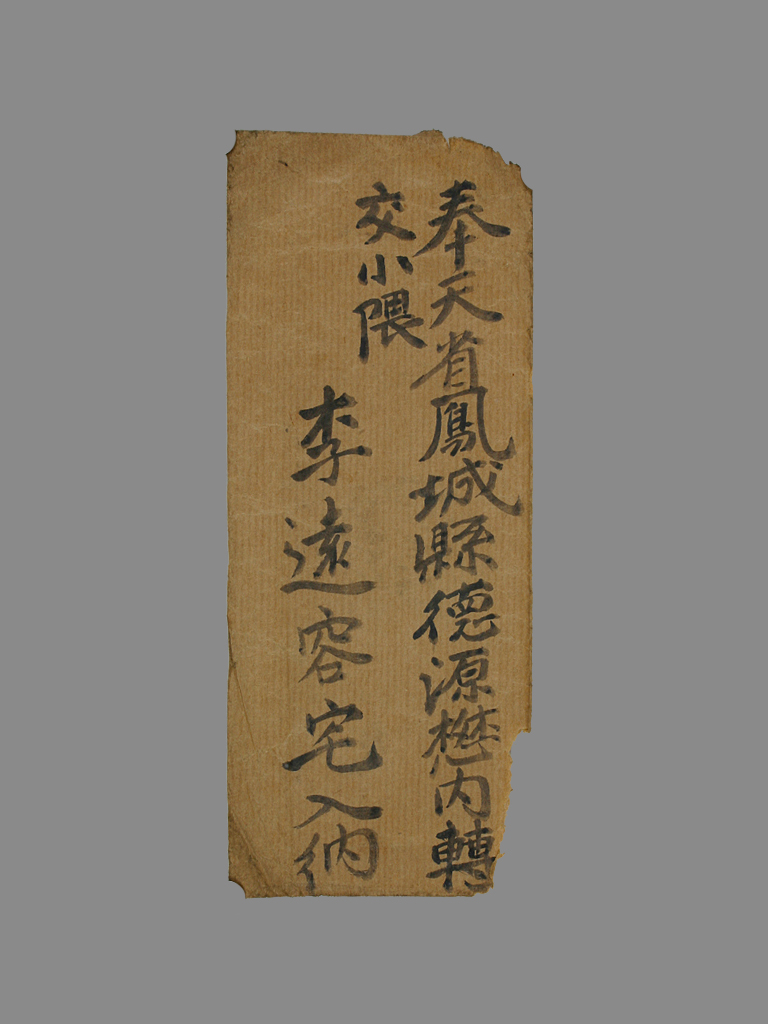 奉天省鳳城縣德源樾內轉
交小隈
李遠容宅入納